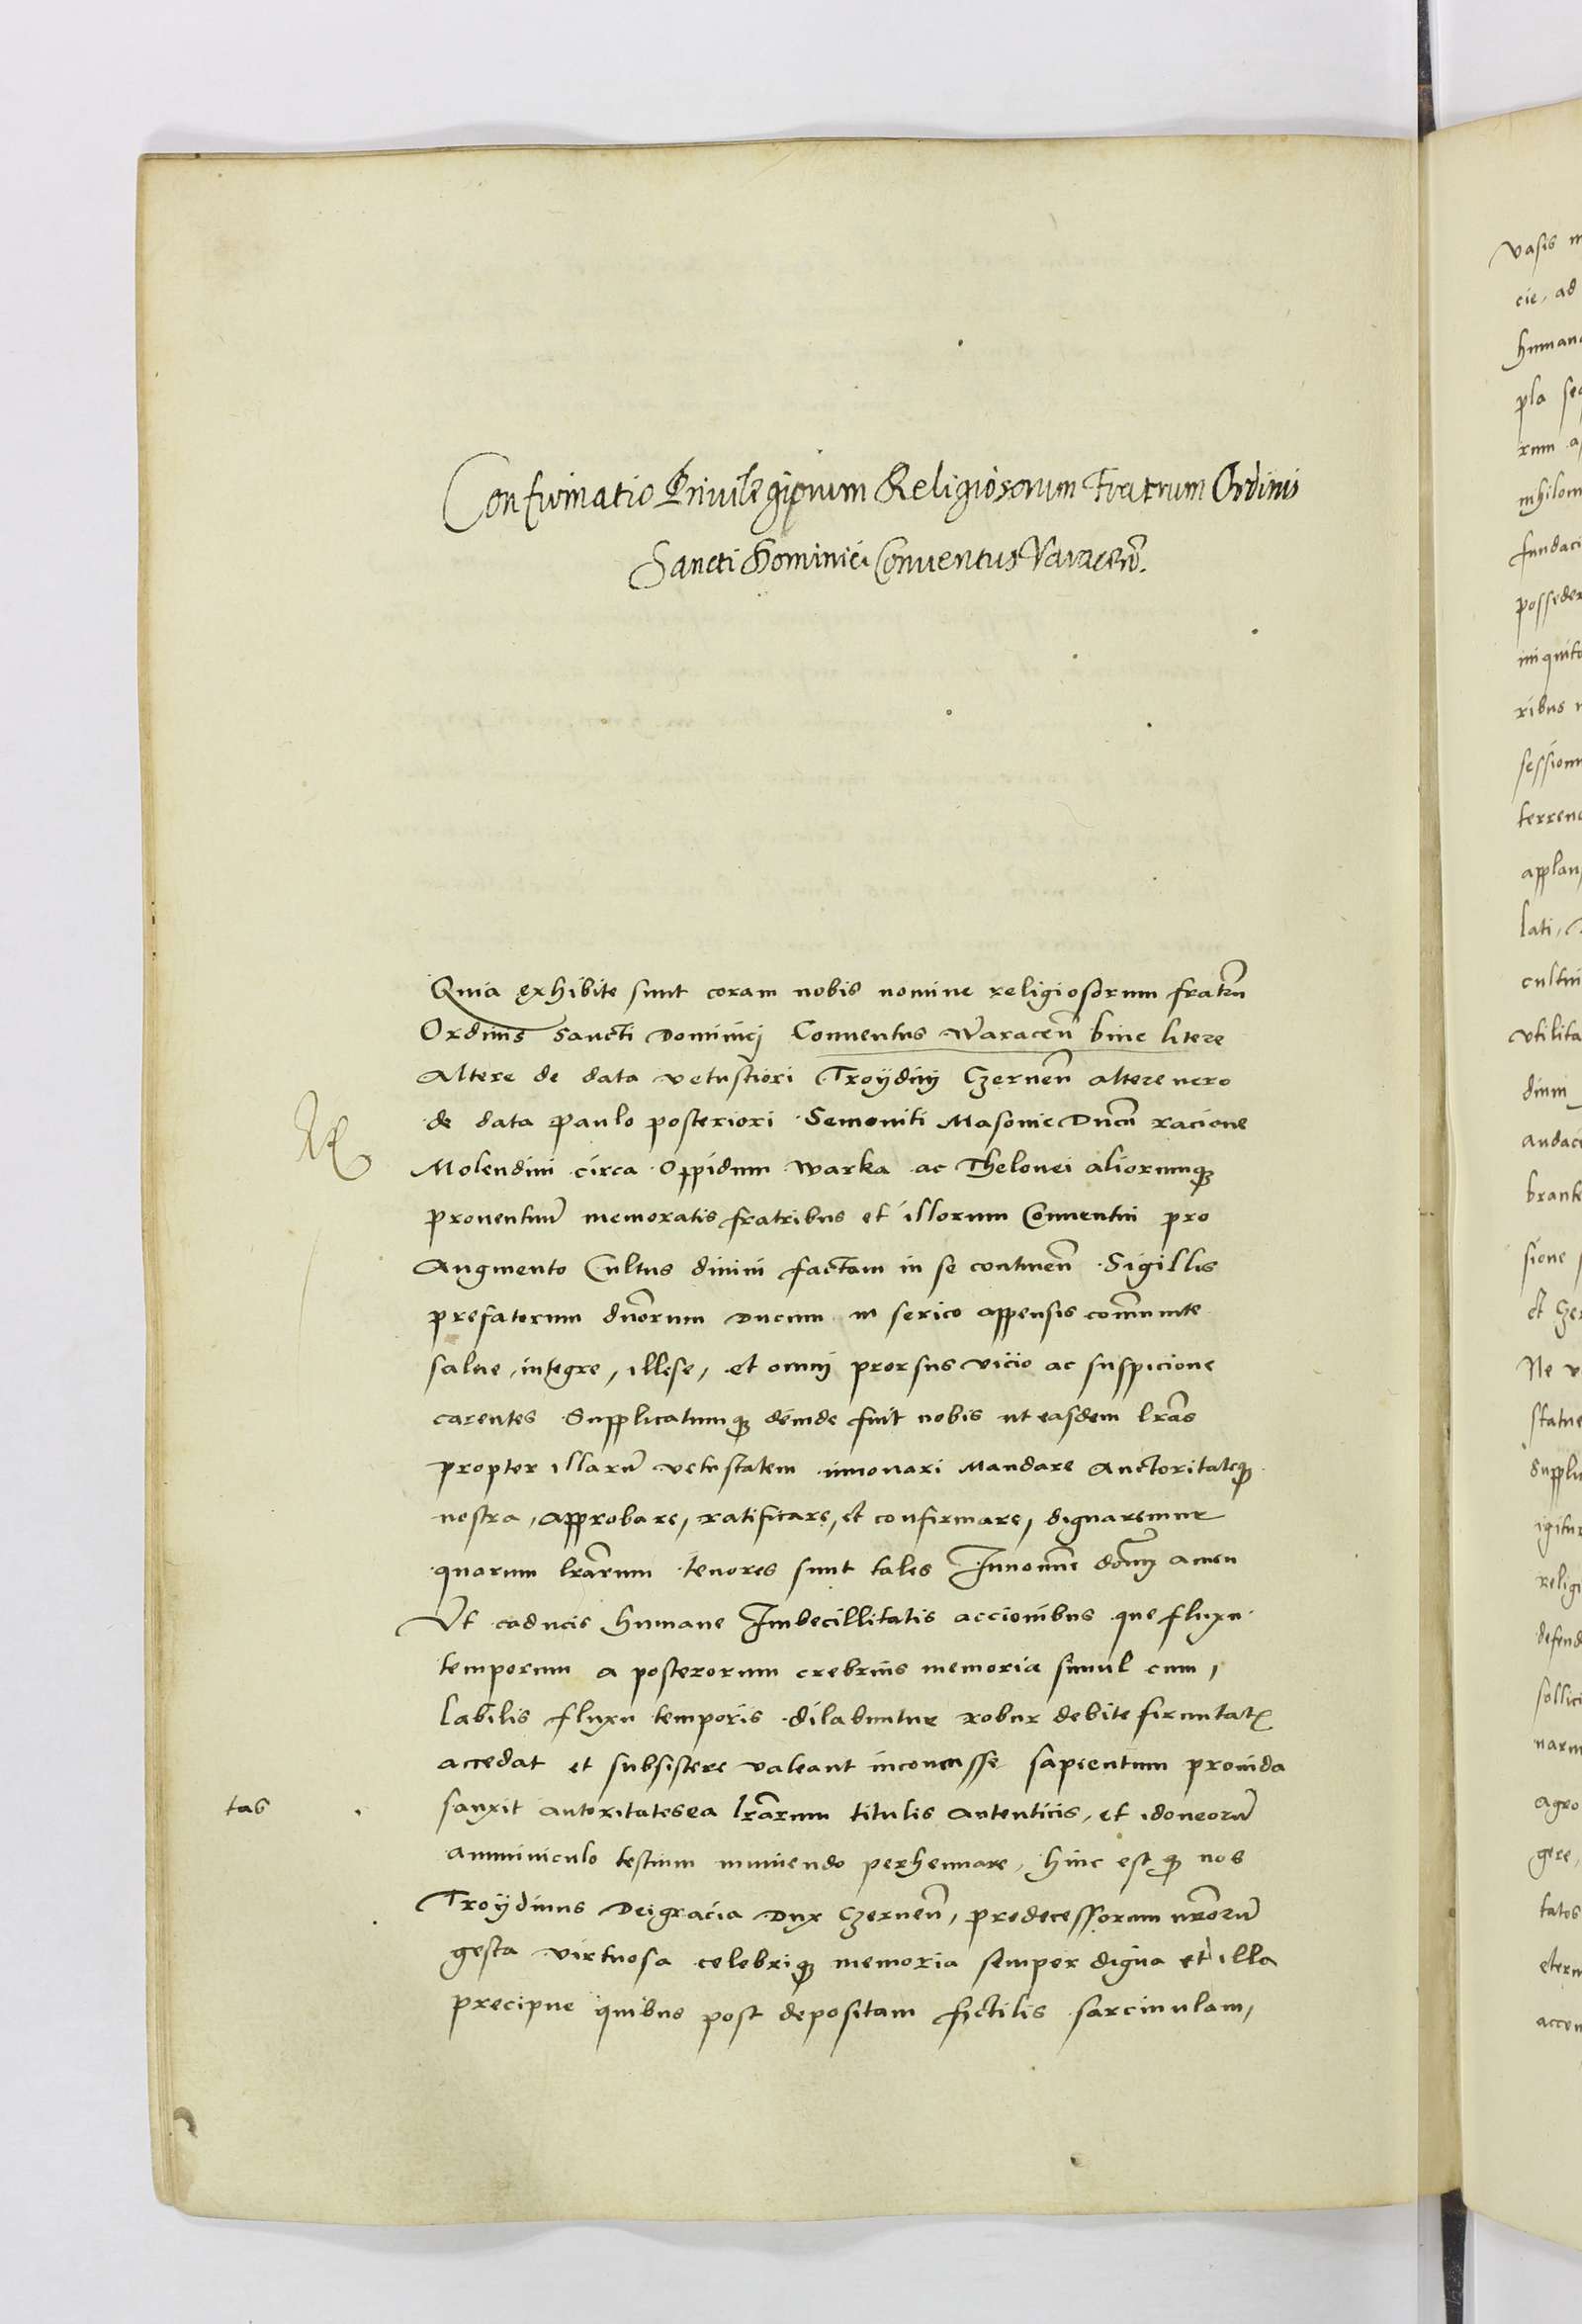 Confirmatio Priuilegiorum Religiosorum Fratrum Ordinis
Sancti Dominici Conuentus Varacen̄.
Quia exhibite sunt coram nobis nomine religiosorum fratrū
Ordinis Sancti Dominicj Conuentus Waracen̄ bine litere
Altere de data vetustiori Troydinj Czernen̄ altere uero
de data paulo posteriori Semouiti Masouie Ducū racione
Molendini circa Oppidum Warka ac Thelonei aliorumqꝫ
prouentuū memoratis fratribus et illorum Conuentui pro
Augmento Cultus diuini factam in se continen̄ Sigillis
prefatorum duōrum Ducum in serico appensis com̄unite
salue, integre, illese, et omnj prorsus vicio ac suspicione
carentes Supplicatumqꝫ deinde fuit nobis ut easdem lr̄as
propter illarū vetustatem innouari Mandare Auctoritateqꝫ
nostra, approbare, ratificare, et confirmare, dignaremur
quorum lr̄arum tenores sunt tales In nomīe dōmj amen
Vt caducis humane Imbecillitatis accionibus que fluxu
temporum a posterorum crebrius memoria simul cum,
labilis fluxu temporis dilabuntur robur debite firmitatꝭ
accedat et subsistere valeant inconcusse sapientum prouida
tas
sanxit autoritates ea lr̄arum titulis autenticis, et idoneorū
amminiculo testium muniendo perhennare, hinc est qꝫ nos
Troydinus Dei gracia Dux Czernen̄, predecessorum nr̄orū
gesta virtuosa celebriqꝫ memoria semper digna et illa
precipue quibus post depositam fictilis sarcinulam,
vasis
cie, ad
pla
rum
fundaci
ribus
lati,
vtilita
dium
sione
Ne
gere,